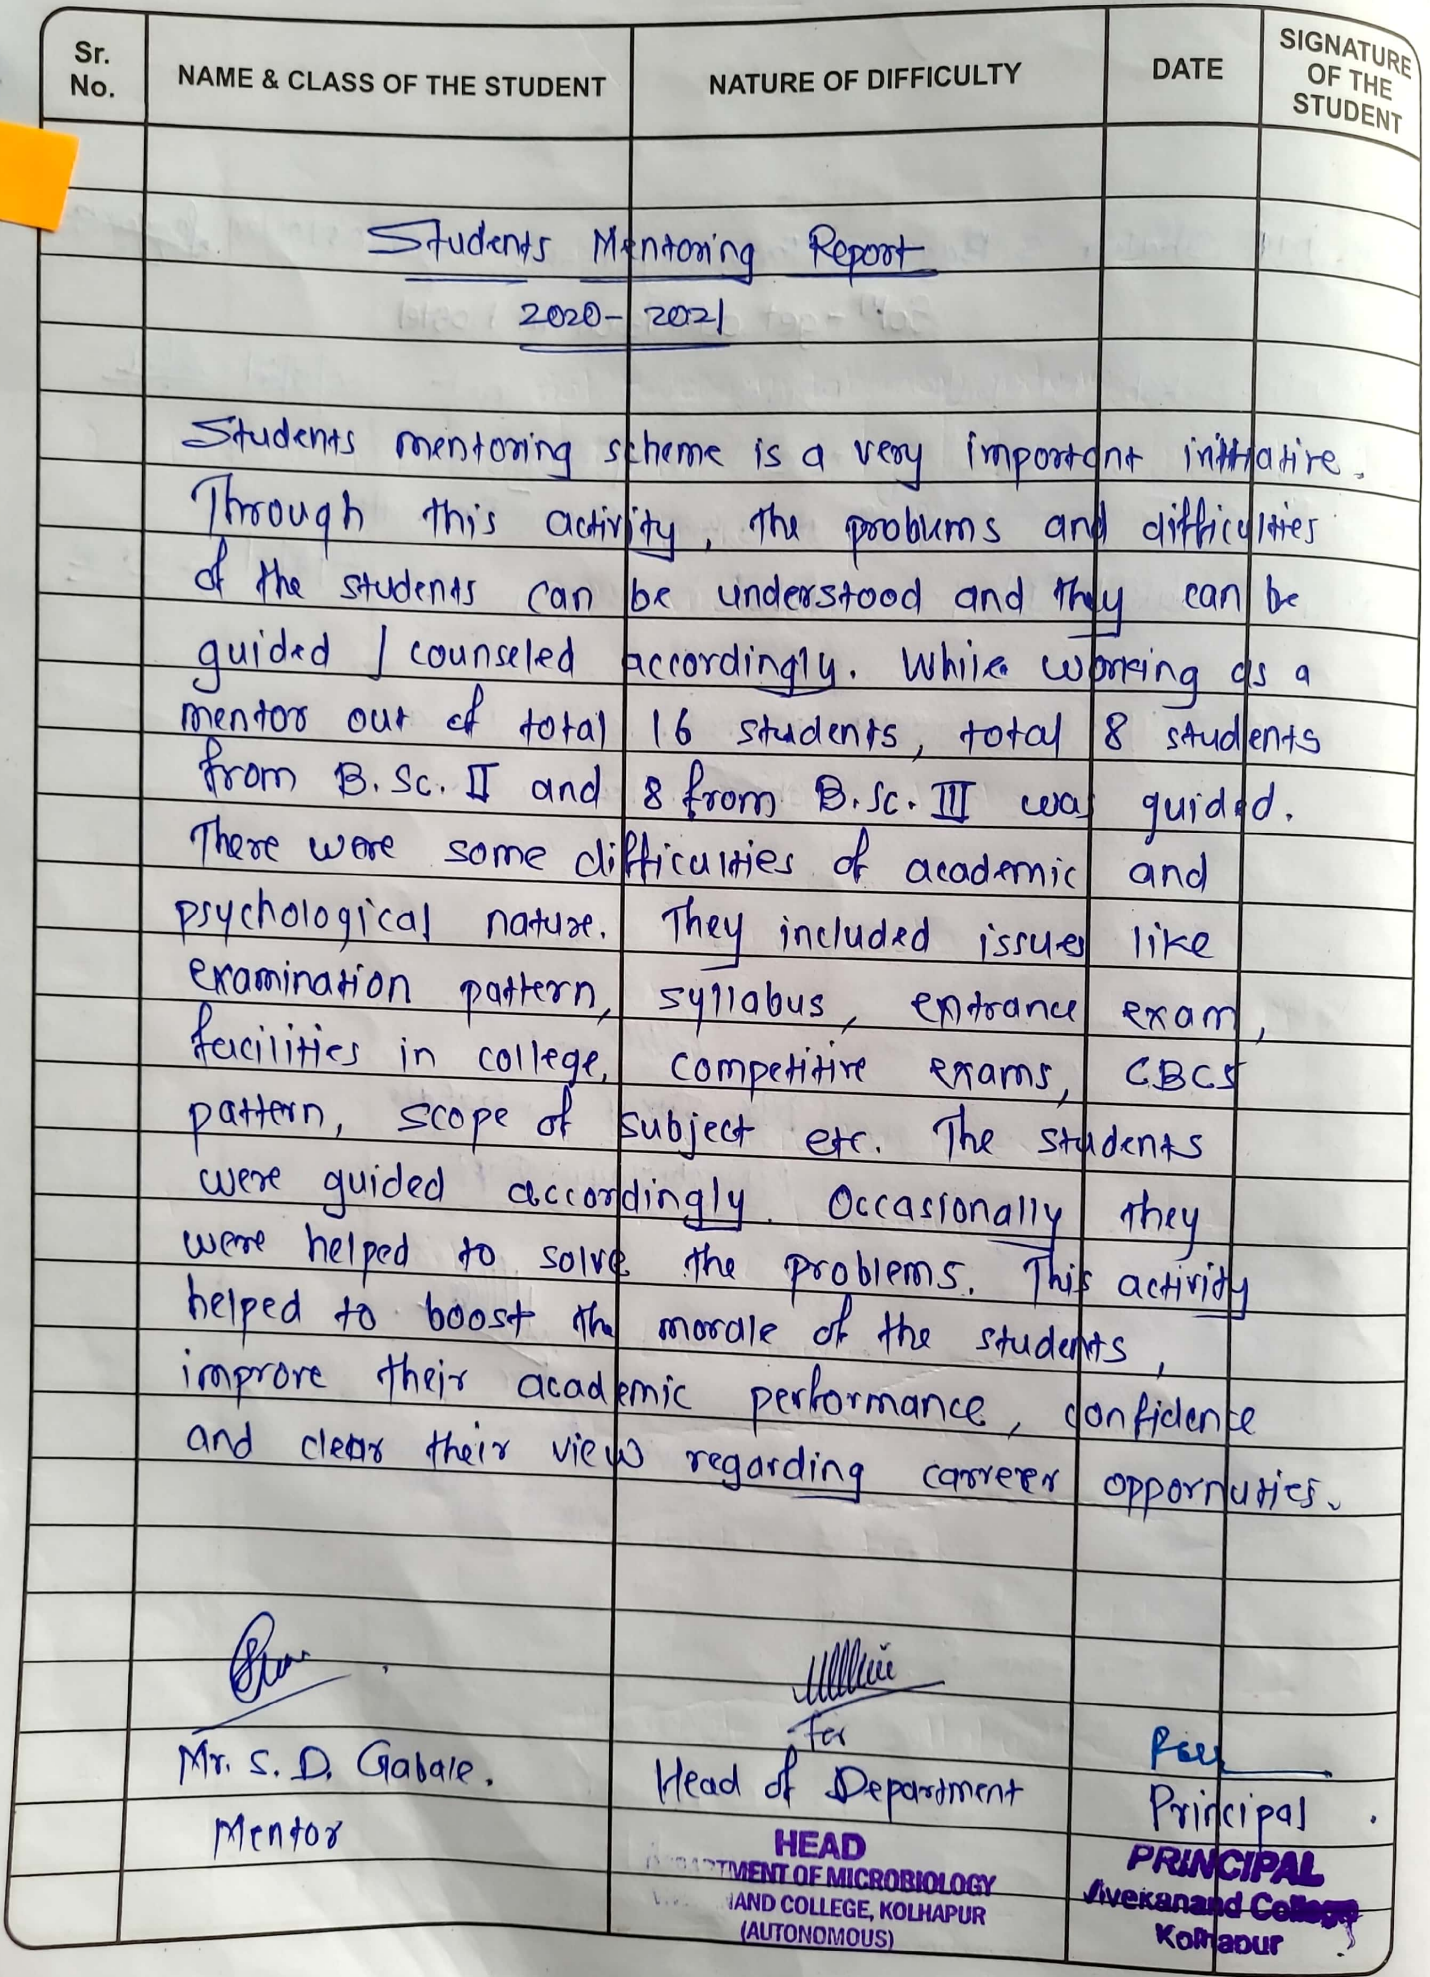 Sr. No.
NAME & CLASS OF THE STUDENT
NATURE OF DIFFICULTY
DATE
SIGNATURE OF THE STUDENT
Students Mentoring Report
2020-2021
Students mentoring scheme is a very important initiative.
Through this activity, the problems and difficulties
of the students can be understood and they can be
guided / counseled accordingly. While working as a
mentor out of total 16 students, total 8 students
from B.Sc. II and 8 from B.Sc. III was guided.
There were some difficulties of academic and
psychological nature. They included issues like
examination pattern, syllabus, entrance exam,
facilities in college, competitive exams, CBCS
pattern, scope of subject etc. The students
were guided accordingly. Occasionally they
were helped to solve the problems. This activity
helped to boost the morale of the students,
improve their academic performance, confidence
and clear their view regarding carreer oppornuties.
for
Mr. S. D. Gabale.
Mentor
Head of Department
HEAD
TMENT OF MICROBIOLOGY
AND COLLEGE, KOLHAPUR
(AUTONOMOUS)
Principal
PRINCIPAL
Vivekanand College
Kolhapur